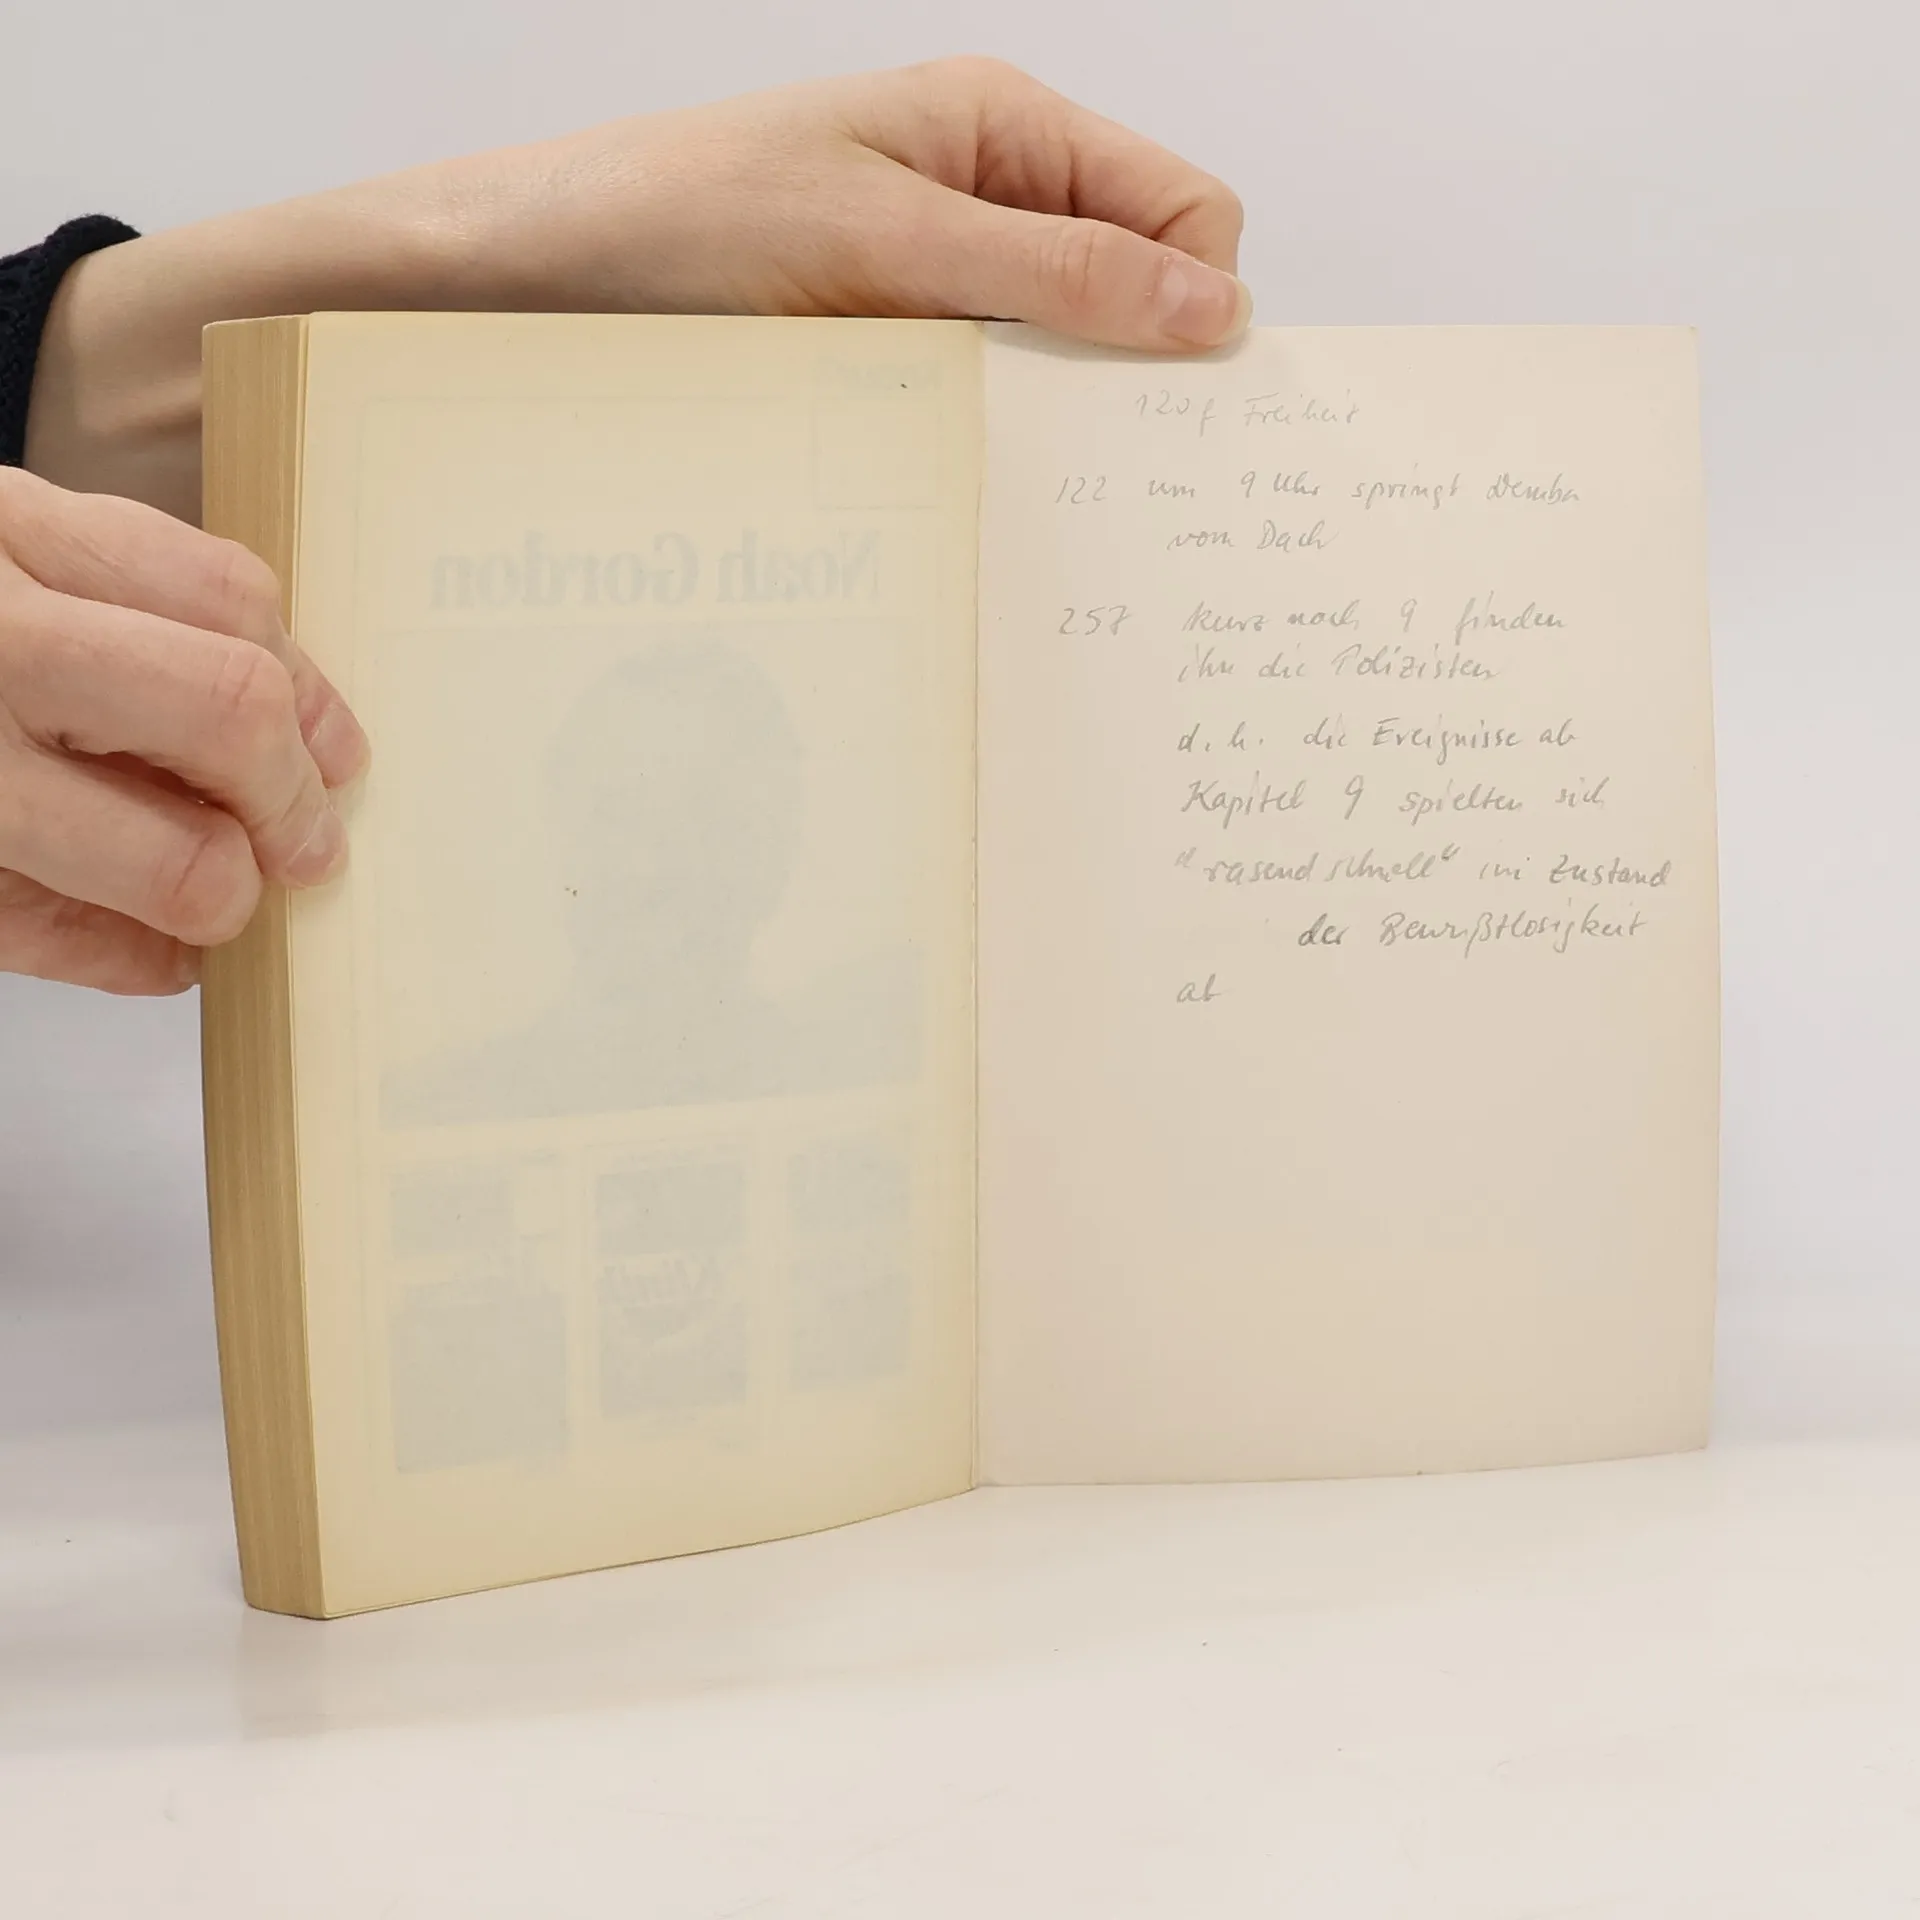 Noah Gordon
120f Freiheit
122 um 9 Uhr springt Demba
vom Dach
257 kurz nach 9 finden
ihn die Polizisten
d. h. die Ereignisse ab
Kapitel 9 spielten sich
"rasend schnell" im Zustand
der Bewußtlosigkeit
ab